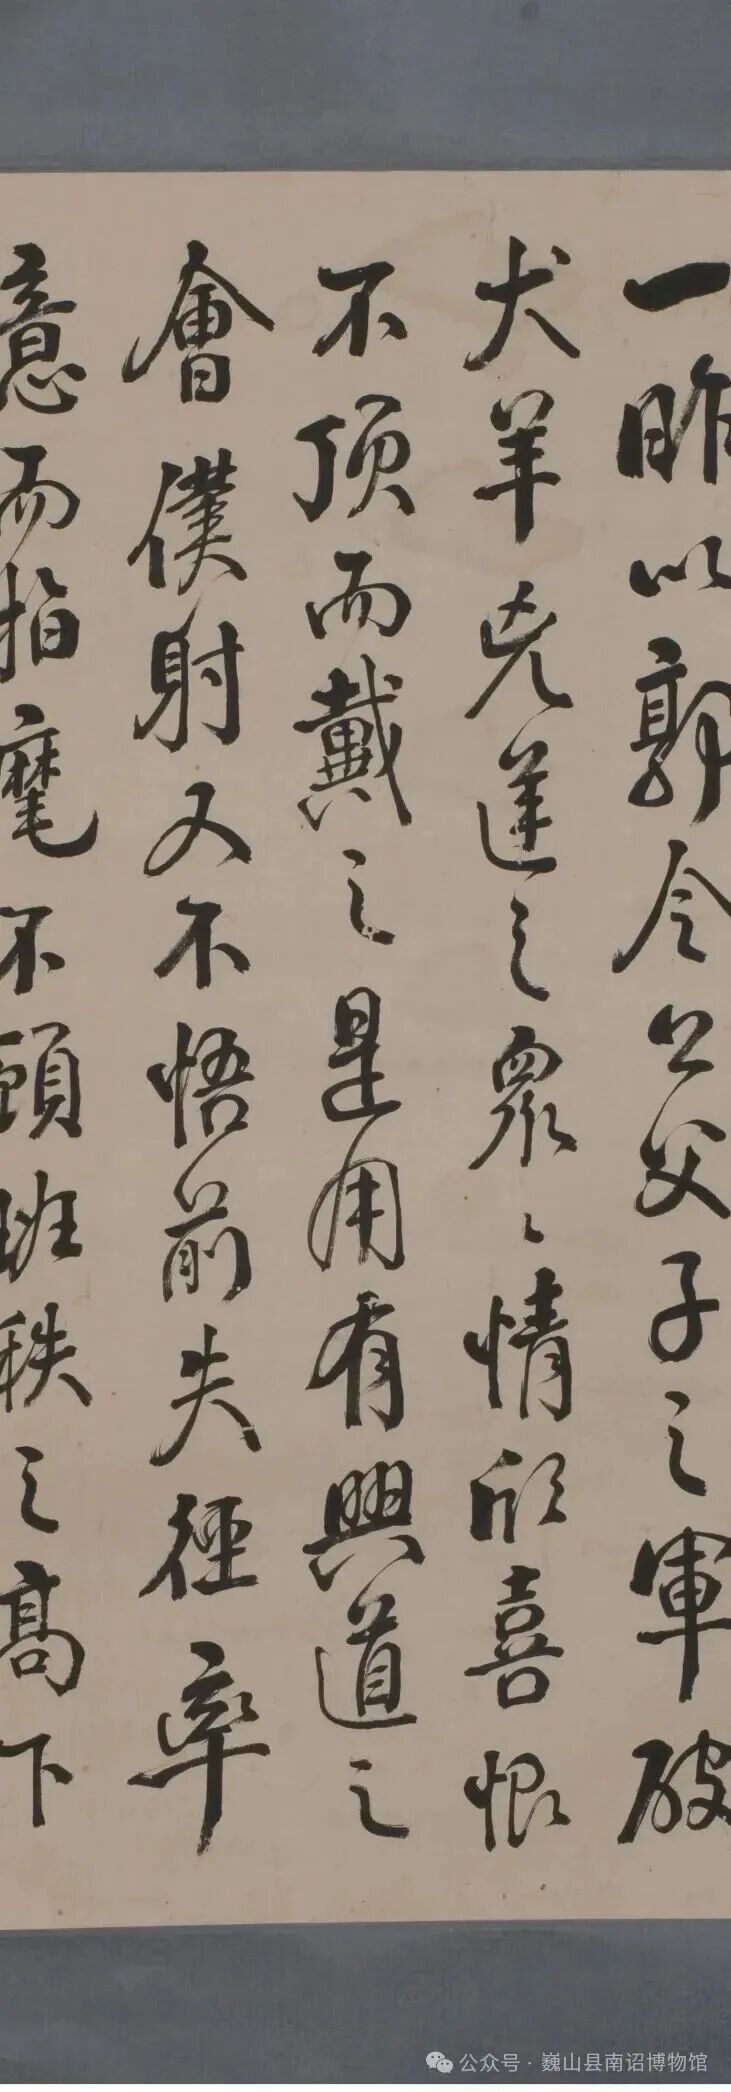 一昨以郭令公父子之軍破
犬羊兇逆之眾〻情欣喜恨
不頂而戴之是用有興道之
會僕射又不悟前失徑率
意而指麾不顧班秩之高下
公众号 · 巍山县南诏博物馆